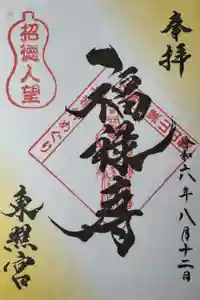 奉拝
福禄寿
令和六年八月十二日
東照宮
招徳人望
めぐり